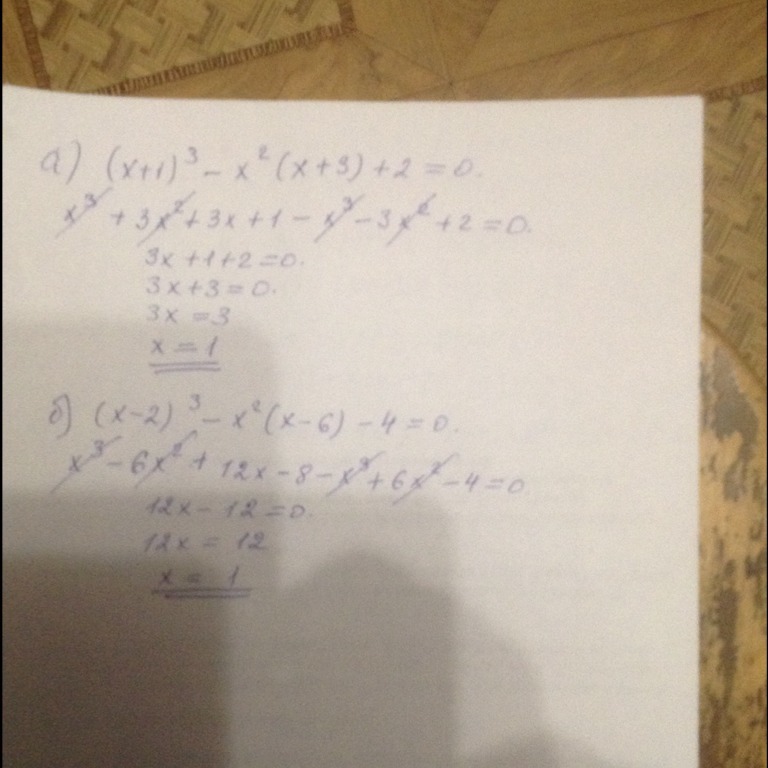 а) (x+1)³ - x² (x+3) + 2 = 0.
x³ + 3x² + 3x + 1 - x³ - 3x² + 2 = 0.
3x + 1 + 2 = 0.
3x + 3 = 0.
3x = 3
x = 1
б) (x-2)³ - x² (x-6) - 4 = 0.
x³ - 6x² + 12x - 8 - x³ + 6x² - 4 = 0
12x - 12 = 0.
12x = 12
x = 1